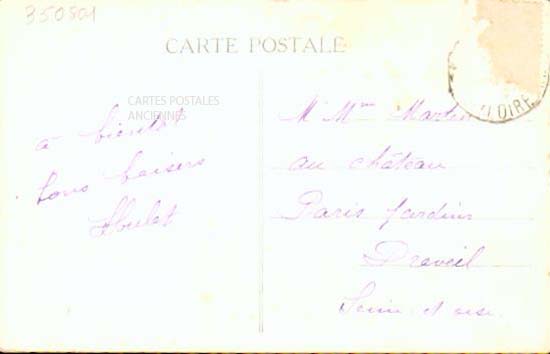 350801
CARTE POSTALE
CARTES POSTALES
ANCIENNES
LOIRE
à bientôt
bons baisers
Mr Mme Martin
au château
Paris Jardins
Draveil
Seine et oise